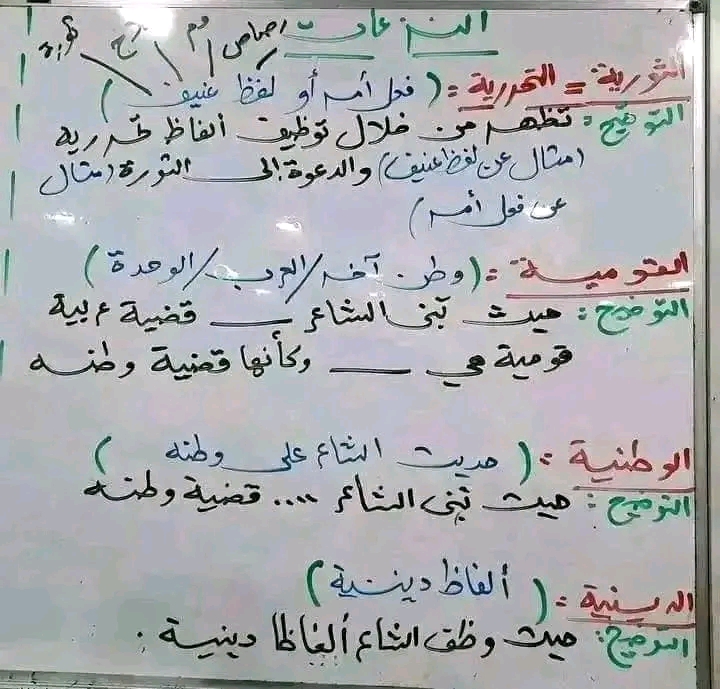 النزعات
الثورية = التحررية : (فعل أمر أو لفظ عنيف)
التوضيح : تظهر من خلال توظيف ألفاظ تحررية
(مثال عن لفظ عنيف) والدعوة إلى الثورة (مثال
عن فعل أمر)
القومية : (وطن آخر / العرب / الوحدة)
التوضيح : حيث تبنى الشاعر ــــ قضية عربية
قومية هي ــــ وكأنها قضية وطنه
الوطنية : (حديث الشاعر على وطنه)
التوضيح : حيث تبنى الشاعر .... قضية وطنه
الدينية : (ألفاظ دينية)
التوضيح : حيث وظف الشاعر ألفاظا دينية .